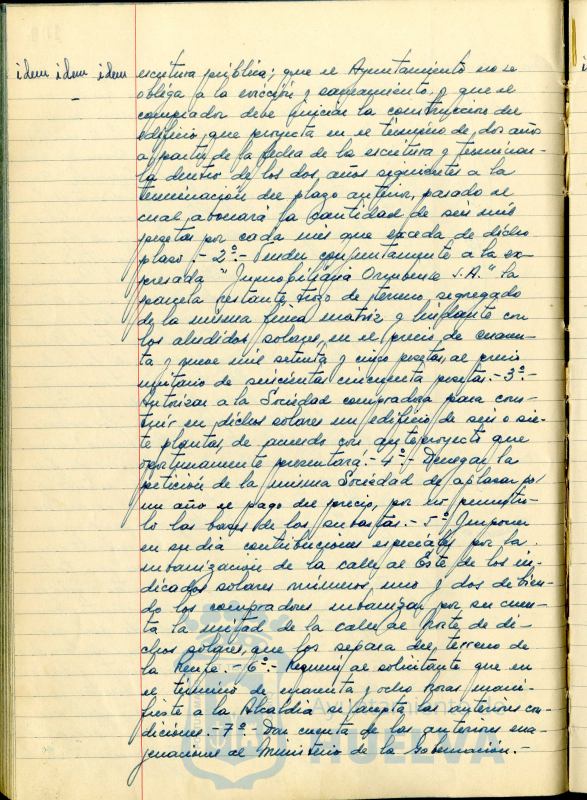 idem idem idem
escritura pública; que el Ayuntamiento no se
obliga a la evicción y saneamiento, y que el
comprador debe iniciar la construcción del
edificio que proyecta en el término de dos años
a partir de la fecha de la escritura y terminar-
la dentro de los dos años siguientes a la
terminación del plazo anterior, pasado el
cual, abonará la cantidad de seis mil
pesetas por cada mes que exceda de dicho
plazo.- 2º.- Vender conjuntamente a la ex-
presada "Inmobiliaria Onubense S.A." la
parcela restante, trozo de terreno segregado
de la misma finca matriz y lindante con
los aludidos solares, en el precio de cuaren-
ta y nueve mil setenta y cinco pesetas, al precio
unitario de seiscientas cincuenta pesetas.- 3º.-
Autorizar a la Sociedad compradora para cons-
truir en dichos solares un edificio de seis o sie-
te plantas, de acuerdo con anteproyecto que
oportunamente presentará.- 4º.- Denegar la
petición de la misma Sociedad de aplazar por
un año el pago del precio, por no permitir-
lo las bases de las subastas.- 5º Imponer
en su día contribuciones especiales por la
urbanización de la calle al Este de los in-
dicados solares números uno y dos debien-
do los compradores urbanizar por su cuen-
ta la mitad de la calle al Norte de di-
chos solares, que los separa del terreno de
la Renfe.- 6º.- Requerir al solicitante que en
el término de cuarenta y ocho horas mani-
fieste a la Alcaldía si acepta las anteriores con-
diciones.- 7º.- Dar cuenta de las anteriores ena-
jenaciones al Ministerio de la Gobernación.-
Ayuntamiento de
HUELVA